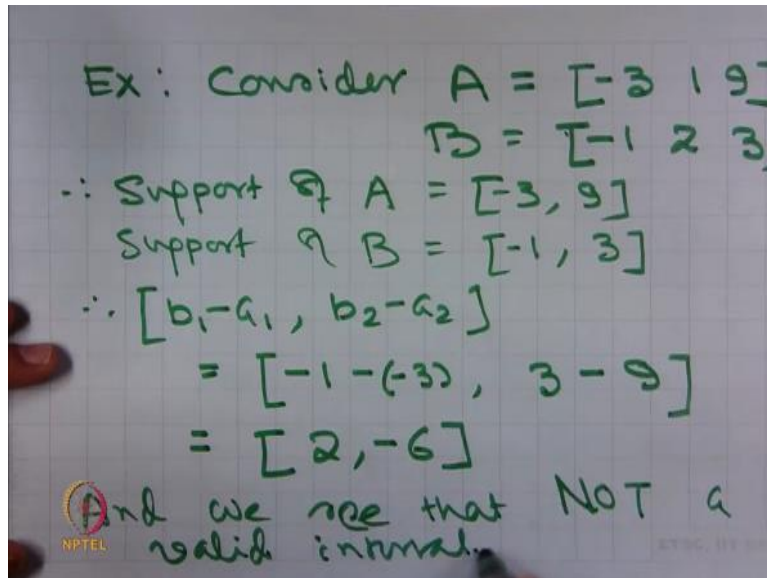 Ex: Consider A = [-3 1 9]
B = [-1 2 3
∴ Support of A = [-3, 9]
Support of B = [-1, 3]
∴ [b₁-a₁, b₂-a₂]
= [-1-(-3), 3-9]
= [2, -6]
And we see that NOT a
valid interval.
NPTEL